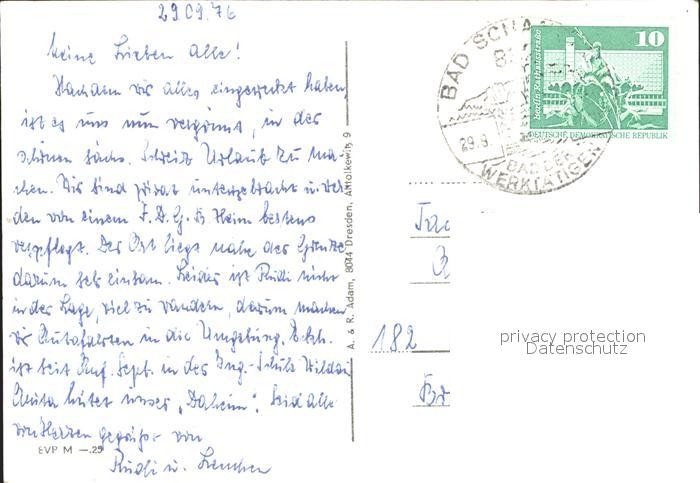 29.09.76
Meine Lieben alle!
Nachdem wir alles eingeweckt haben,
ist es uns nun vergönnt, in der
schönen Sächs. Schweiz Urlaub zu ma-
chen. Wir sind privat untergebracht u. wer
den von einem F.D.G.B. Heim bestens
verpflegt. Der Ort liegt nahe der Grenze
darum sehr einsam. Leider ist Rudi nicht
in der Lage, viel zu wandern, darum machen
wir Autofahrten in die Umgebung.
ist seit Anf. Sept. in der Ing.-Schule
Anita hütet unser „Daheim". Seid alle
von Herzen gegrüßt von
Rudi u. Lenchen
EVP M —.25
A. & R. Adam, 8044 Dresden, Altlolkewitz 9
BAD SCHAN
29.9.
BAD DER
WERKTÄTIGEN
10
Berlin Rathausstraße
DEUTSCHE DEMOKRATISCHE REPUBLIK
182
privacy protection
Datenschutz